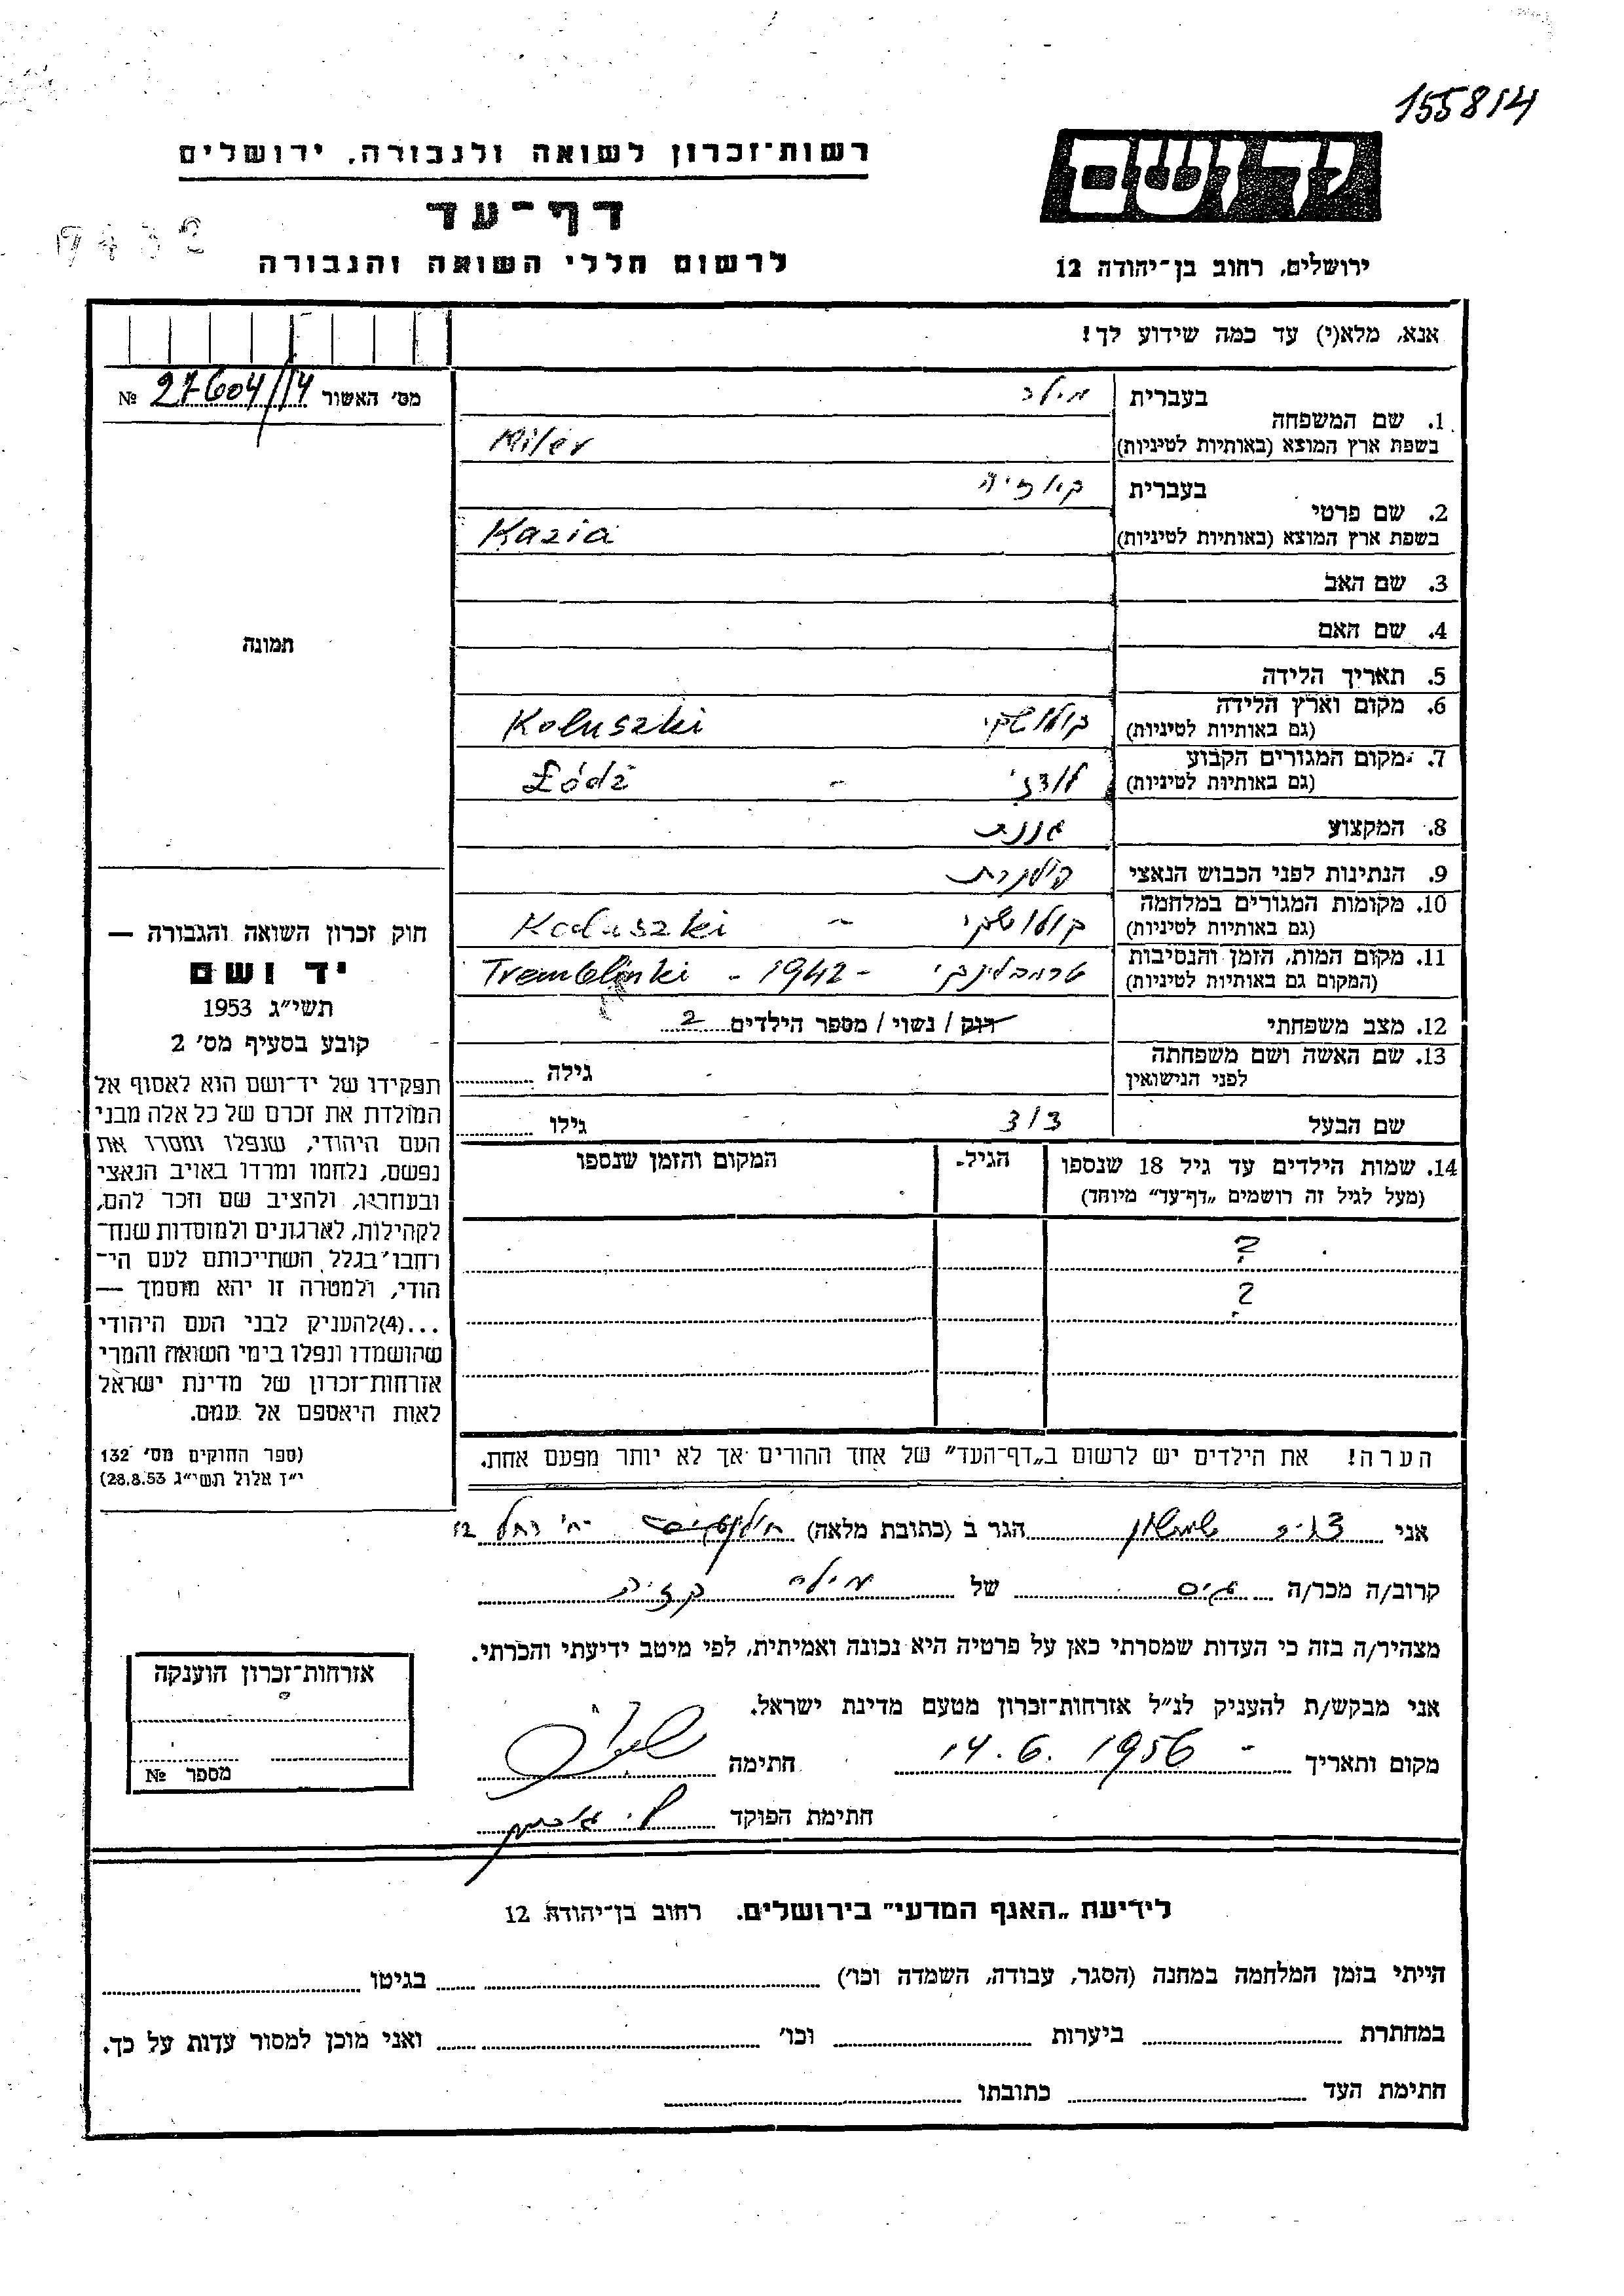 155814
ידושם
רשות־זכרון לשואה ולגבורה, ירושלים
דף־עד
לרשום חללי השואה והגבורה
ירושלים, רחוב בן־יהודה 12
אנא, מלא(י) עד כמה שידוע לך!
מס׳ האשור 27604/14 №
1. שם המשפחה
בעברית מילר
בשפת ארץ המוצא (באותיות לטיניות) Miler
2. שם פרטי
בעברית קאזיה
בשפת ארץ המוצא (באותיות לטיניות) Kazia
3. שם האב
4. שם האם
תמונה
5. תאריך הלידה
6. מקום וארץ הלידה
(גם באותיות לטיניות) קולושקי Koluszki
7. מקום המגורים הקבוע
(גם באותיות לטיניות) לודז׳ - Łódź
8. המקצוע גננת
9. הנתינות לפני הכבוש הנאצי פולנית
10. מקומות המגורים במלחמה
(גם באותיות לטיניות) קולושקי - Koluszki
11. מקום המות, הזמן והנסיבות
(המקום גם באותיות לטיניות) טרמבלינקי - 1942 - Tremblinki
12. מצב משפחתי רוק / נשוי / מספר הילדים 2
13. שם האשה ושם משפחתה
לפני הנישואין גילה
שם הבעל דוד גילו
14. שמות הילדים עד גיל 18 שנספו
(מעל לגיל זה רושמים „דף־עד״ מיוחד)
הגיל
המקום והזמן שנספו
?
?
הערה! את הילדים יש לרשום ב„דף־העד״ של אחד ההורים אך לא יותר מפעם אחת.
חוק זכרון השואה והגבורה —
יד ושם
תשי״ג 1953
קובע בסעיף מס׳ 2
תפקידו של יד־ושם הוא לאסוף אל
המולדת את זכרם של כל אלה מבני
העם היהודי, שנפלו ומסרו את
נפשם, נלחמו ומרדו באויב הנאצי
ובעוזריו, ולהציב שם וזכר להם,
לקהילות, לארגונים ולמוסדות שנח־
רחבו בגלל השתייכותם לעם הי־
הודי, ולמטרה זו יהא מוסמך —
...(4)להעניק לבני העם היהודי
שהושמדו ונפלו בימי השואה והמרי
אזרחות־זכרון של מדינת ישראל
לאות היאספם אל עמם.
(ספר החוקים מס׳ 132
י״ד אלול תשי״ג 28.8.53)
אני שמשון הגר ב (כתובת מלאה) רח׳ רחל 12
קרוב/ה מכר/ה גיס של מילר קזיה
מצהיר/ה בזה כי העדות שמסרתי כאן על פרטיה היא נכונה ואמיתית, לפי מיטב ידיעתי והכרתי.
אני מבקש/ת להעניק לנ״ל אזרחות־זכרון מטעם מדינת ישראל.
מקום ותאריך - 14.6.1956 חתימה
חתימת הפוקד
אזרחות־זכרון הוענקה
מספר №
לידיעת „האגף המדעי״ בירושלים. רחוב בן־יהודה 12
הייתי בזמן המלחמה במחנה (הסגר, עבודה, השמדה וכו׳) בגיטו
במחתרת ביערות וכו׳ ואני מוכן למסור עדות על כך.
חתימת העד כתובתו